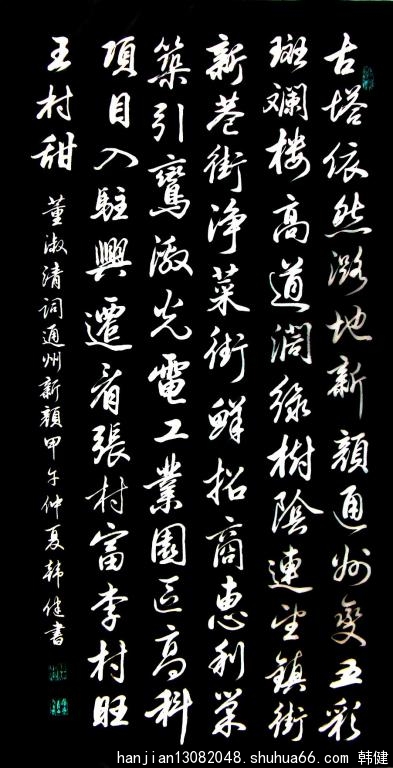 古塔依然潞地新顏通州變五彩
斑斕樓高道闊綠樹陰連鎮街
新巷街淨菜街鮮招商惠利巢
築引鸞激光電工業園区高科
項目入駐興遷看張村富李村旺
王村甜
董淑清词通州新顏甲午仲夏韩健書
hanjian13082048.shuhua66.com 韩健